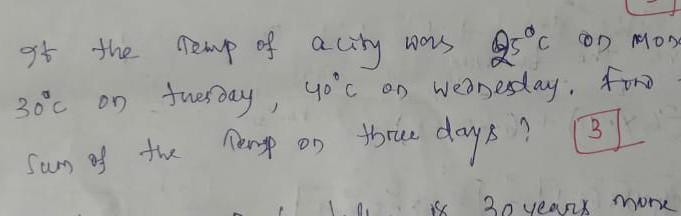 If the Temp of a city was 25°C on Mon
30°C on tuesday, 40°C on wednesday. Find
sum of the Temp on three days? 3
is 30 years more